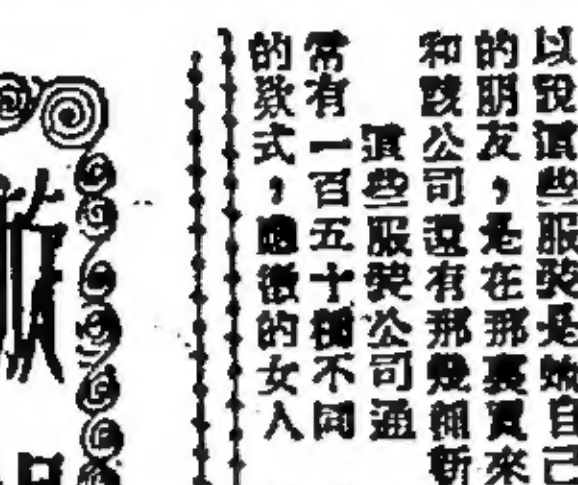 以說這些服裝是她自己
的朋友，是在那裏買來
和該公司還有那幾個新
這些服裝公司通
常有一百五十種不同
的款式，過後的女人